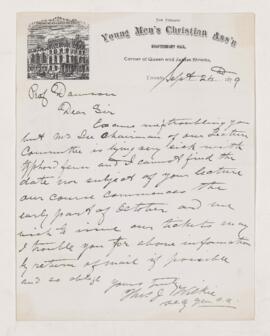 The Toronto
Young Men's Christian Ass'n
Shaftesbury Hall
Corner of Queen and James Streets,
Toronto, Sept 26 1879
Prof Dawson
Dear Sir
Excuse my troubling you
but Mr Lee Chairman of our Lecture
Committee is lying very sick with
typhoid fever and I cannot find the
date nor subject of your lecture
our course commences the
early part of October and we
wish to issue our tickets may
I trouble you for above information
by return of mail if possible
and so oblige
yours truly
Thos J. Wilkie